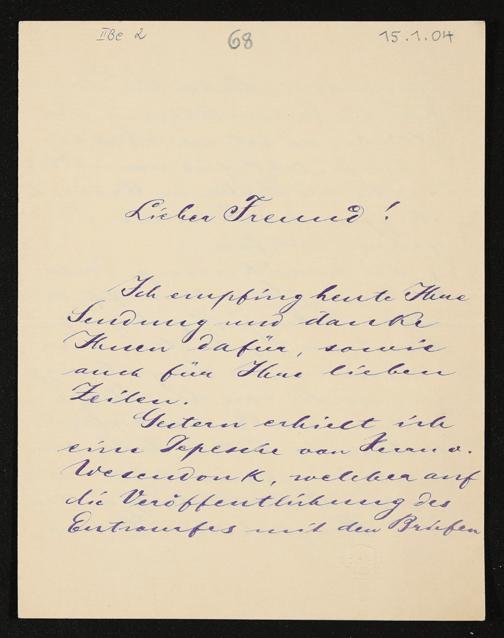 IIBe 2
68
15.1.04
Lieber Freund!
Ich empfing heute Ihre
Sendung und danke
Ihnen dafür, sowie
auch für Ihre lieben
Zeilen.
Gestern erhielt ich
eine Depesche von Herrn v.
Wesendonk, welcher auf
die Veröffentlichung des
Entwurfes mit den Briefen